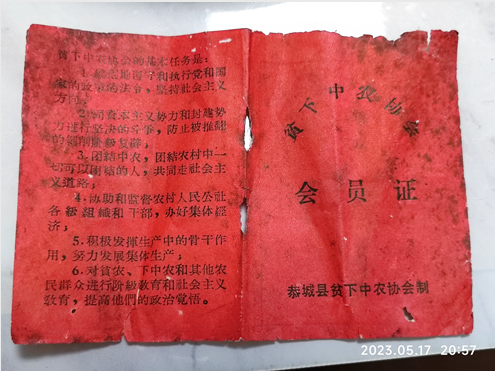 贫下中农协会的基本任务是:
1.模范地遵守和执行党和国
家的政策的法令,坚持社会主义
方向;
2.同资本主义势力和封建势
力进行坚决的斗争,防止被推翻
的剥削阶级复辟;
3.团结中农,团结农村中一
切可以团结的人,共同走社会主义
道路;
4.协助和监督农村人民公社
各级组织和干部,办好集体经
济;
5.积极发挥生产中的骨干作
用,努力发展集体生产;
6.对贫农、下中农和其他农
民群众进行阶级教育和社会主义
教育,提高他们的政治觉悟。
贫下中农协会
会员证
恭城县贫下中农协会制
2023.05.17 20:57